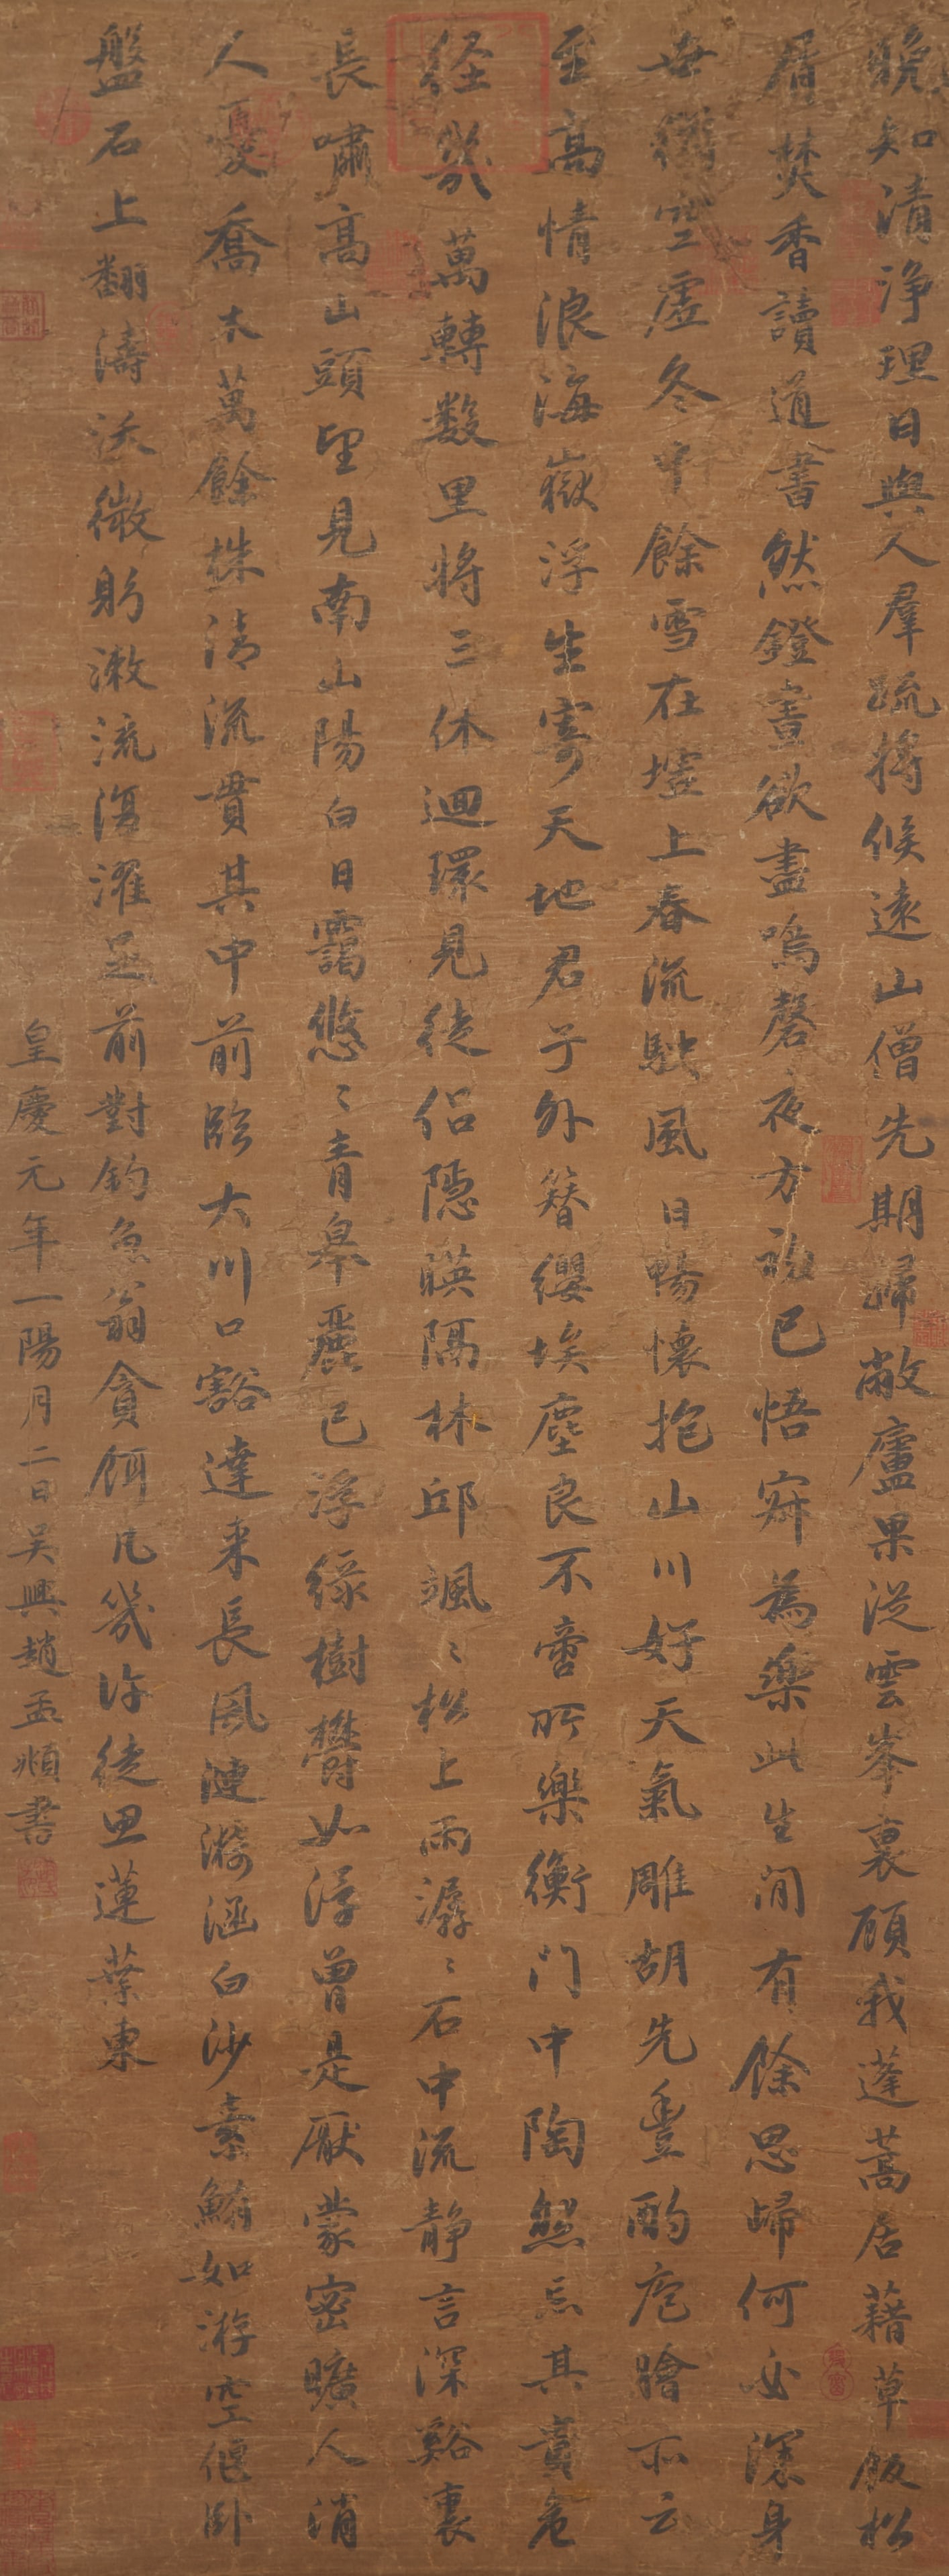 晚知清淨理日與人羣疏將候遠山僧先期歸敝廬果從雲峯裏顧我蓬蒿居藉草飯松
屑焚香讀道書然鐙晝欲盡鳴磬夜方初已悟寂為樂此生閒有餘思歸何必深身
世猶空虛冬中餘雪在墟上春流駛風日暢懷抱山川好天氣雕胡先豊酌庖膾亦云
至高情浪海嶽浮生寄天地君子外簪纓埃塵良不啻所樂衡門中陶然忘其貴危
経幾萬轉数里將三休迴環見徒侶隱暎隔林邱颯〻松上雨潺〻石中流静言深谿裏
長嘯高山頭望見南山陽白日靄悠〻青皋麗已淨綠樹鬱如浮曾是厭蒙密曠人消
人憂喬木萬餘株清流貫其中前臨大川口豁達来長風漣漪涵白沙素鮪如游空偃卧
盤石上翻濤沃微躬漱流復濯足前對釣魚翁貪餌凡幾許徒思蓮葉東
皇慶元年一陽月二日吳興趙孟頫書